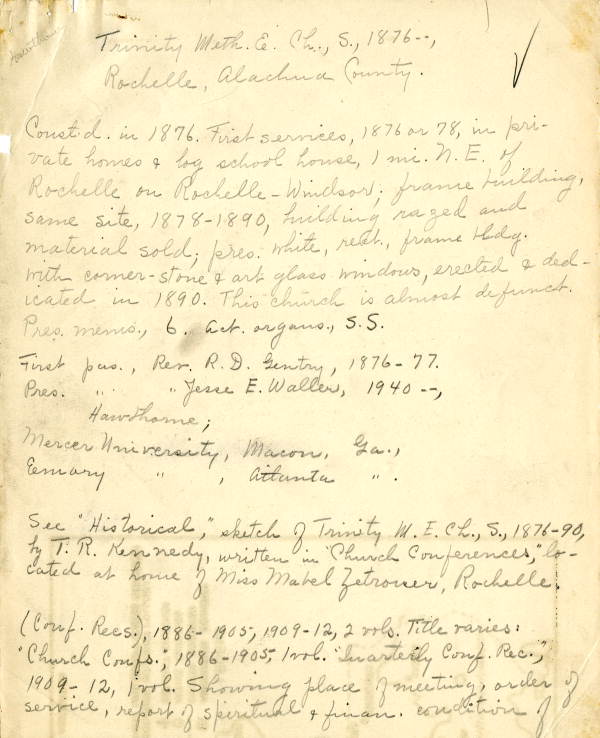 Hawthorne
Trinity Meth. E. Ch., S., 1876--,
Rochelle, Alachua County.
Const'd. in 1876. First services, 1876 or 78, in pri-
vate homes & log school house, 1 mi. N. E. of
Rochelle on Rochelle-Windsor; frame building,
same site, 1878-1890, building razed and
material sold; pres. white, rect., frame bldg.
with corner-stone & art glass windows, erected & ded-
icated in 1890. This church is almost defunct.
Pres. mems., 6. Act. organs., S.S.
First pas., Rev. R. D. Gentry, 1876-77.
Pres. " " Jesse E. Waller, 1940 --,
Hawthorne;
Mercer University, Macon, Ga.,
Emory " , Atlanta " .
See "Historical," sketch of Trinity M. E. Ch., S., 1876-90,
by T. R. Kennedy, written in "Church Conferences," lo-
cated at home of Miss Mabel Zetrouer, Rochelle.
(Conf. Recs.), 1886-1905, 1909-12, 2 vols. Title varies:
"Church Confs.", 1886-1905, 1 vol. "Quarterly Conf. Rec.",
1909-12, 1 vol. Showing place of meeting, order of
service, report of spiritual & finan. condition of